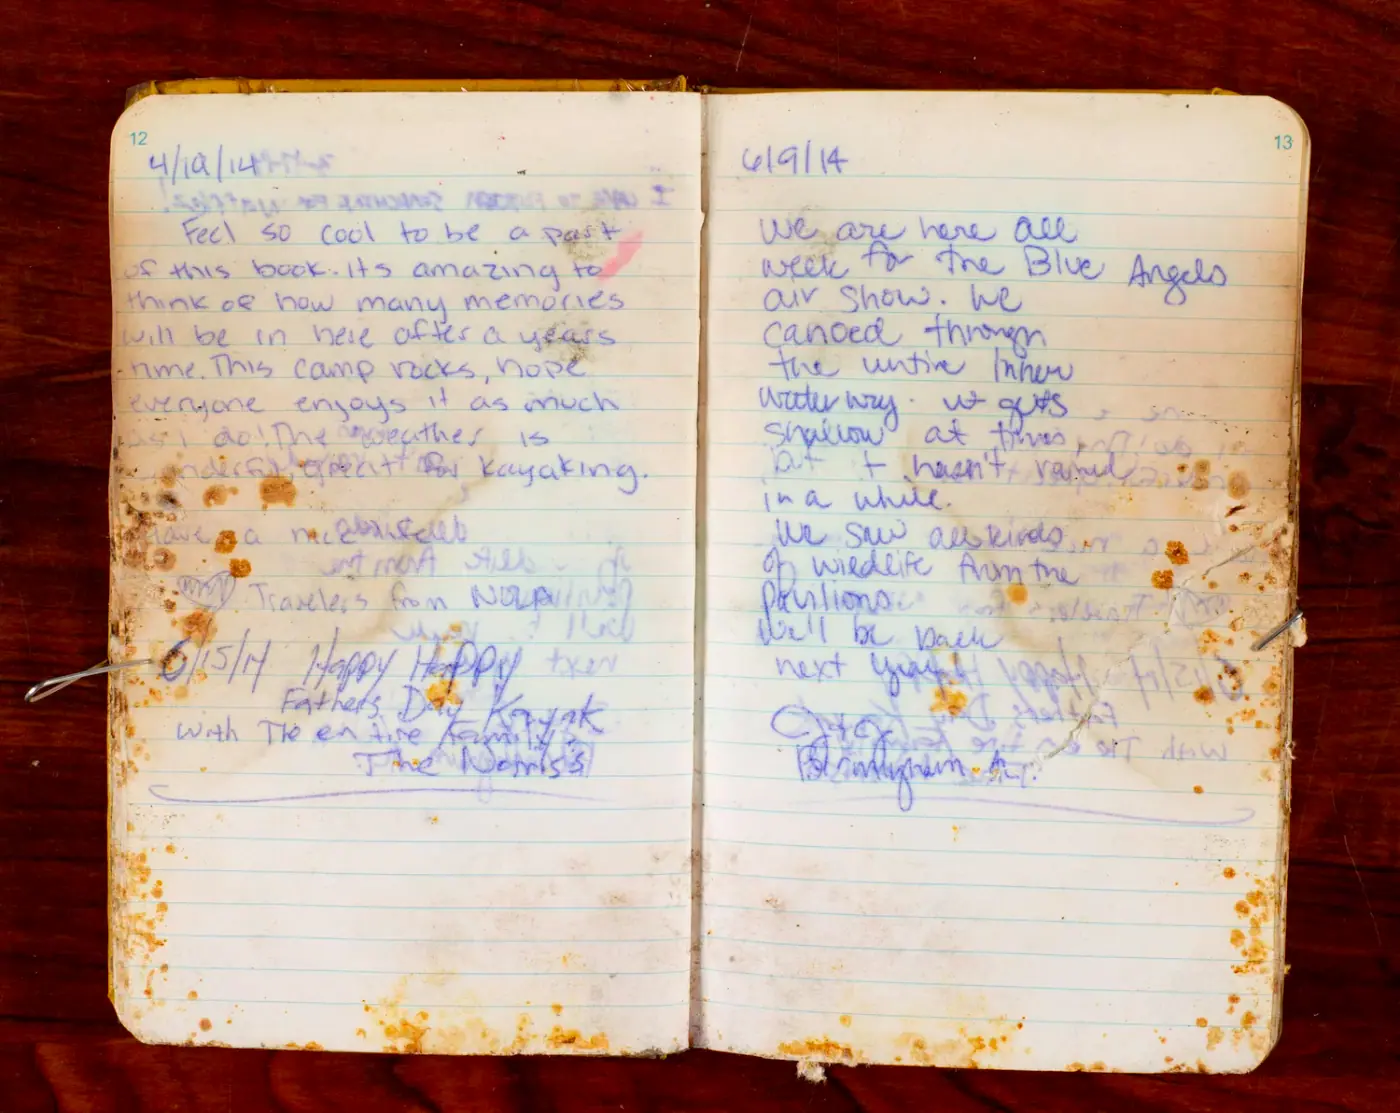 12
4/19/14
Feel so cool to be a part
of this book. Its amazing to
think of how many memories
will be in here after a years
time. This camp rocks, hope
everyone enjoys it as much
as i do! The weather is
wonderful, great for kayaking.
Have a nice
Travelers from
6/15/14 Happy Happy
Fathers Day Kayak
with The entire family
The
13
6/9/14
We are here all
week for the Blue Angels
air show. We
canoed through
the untire Inner
water way. it gets
shallow at times
but it hasn't rained
in a while.
We saw all kinds
of wiedlife from the
pavilions
We'll be back
next year
Birmingham, AL.